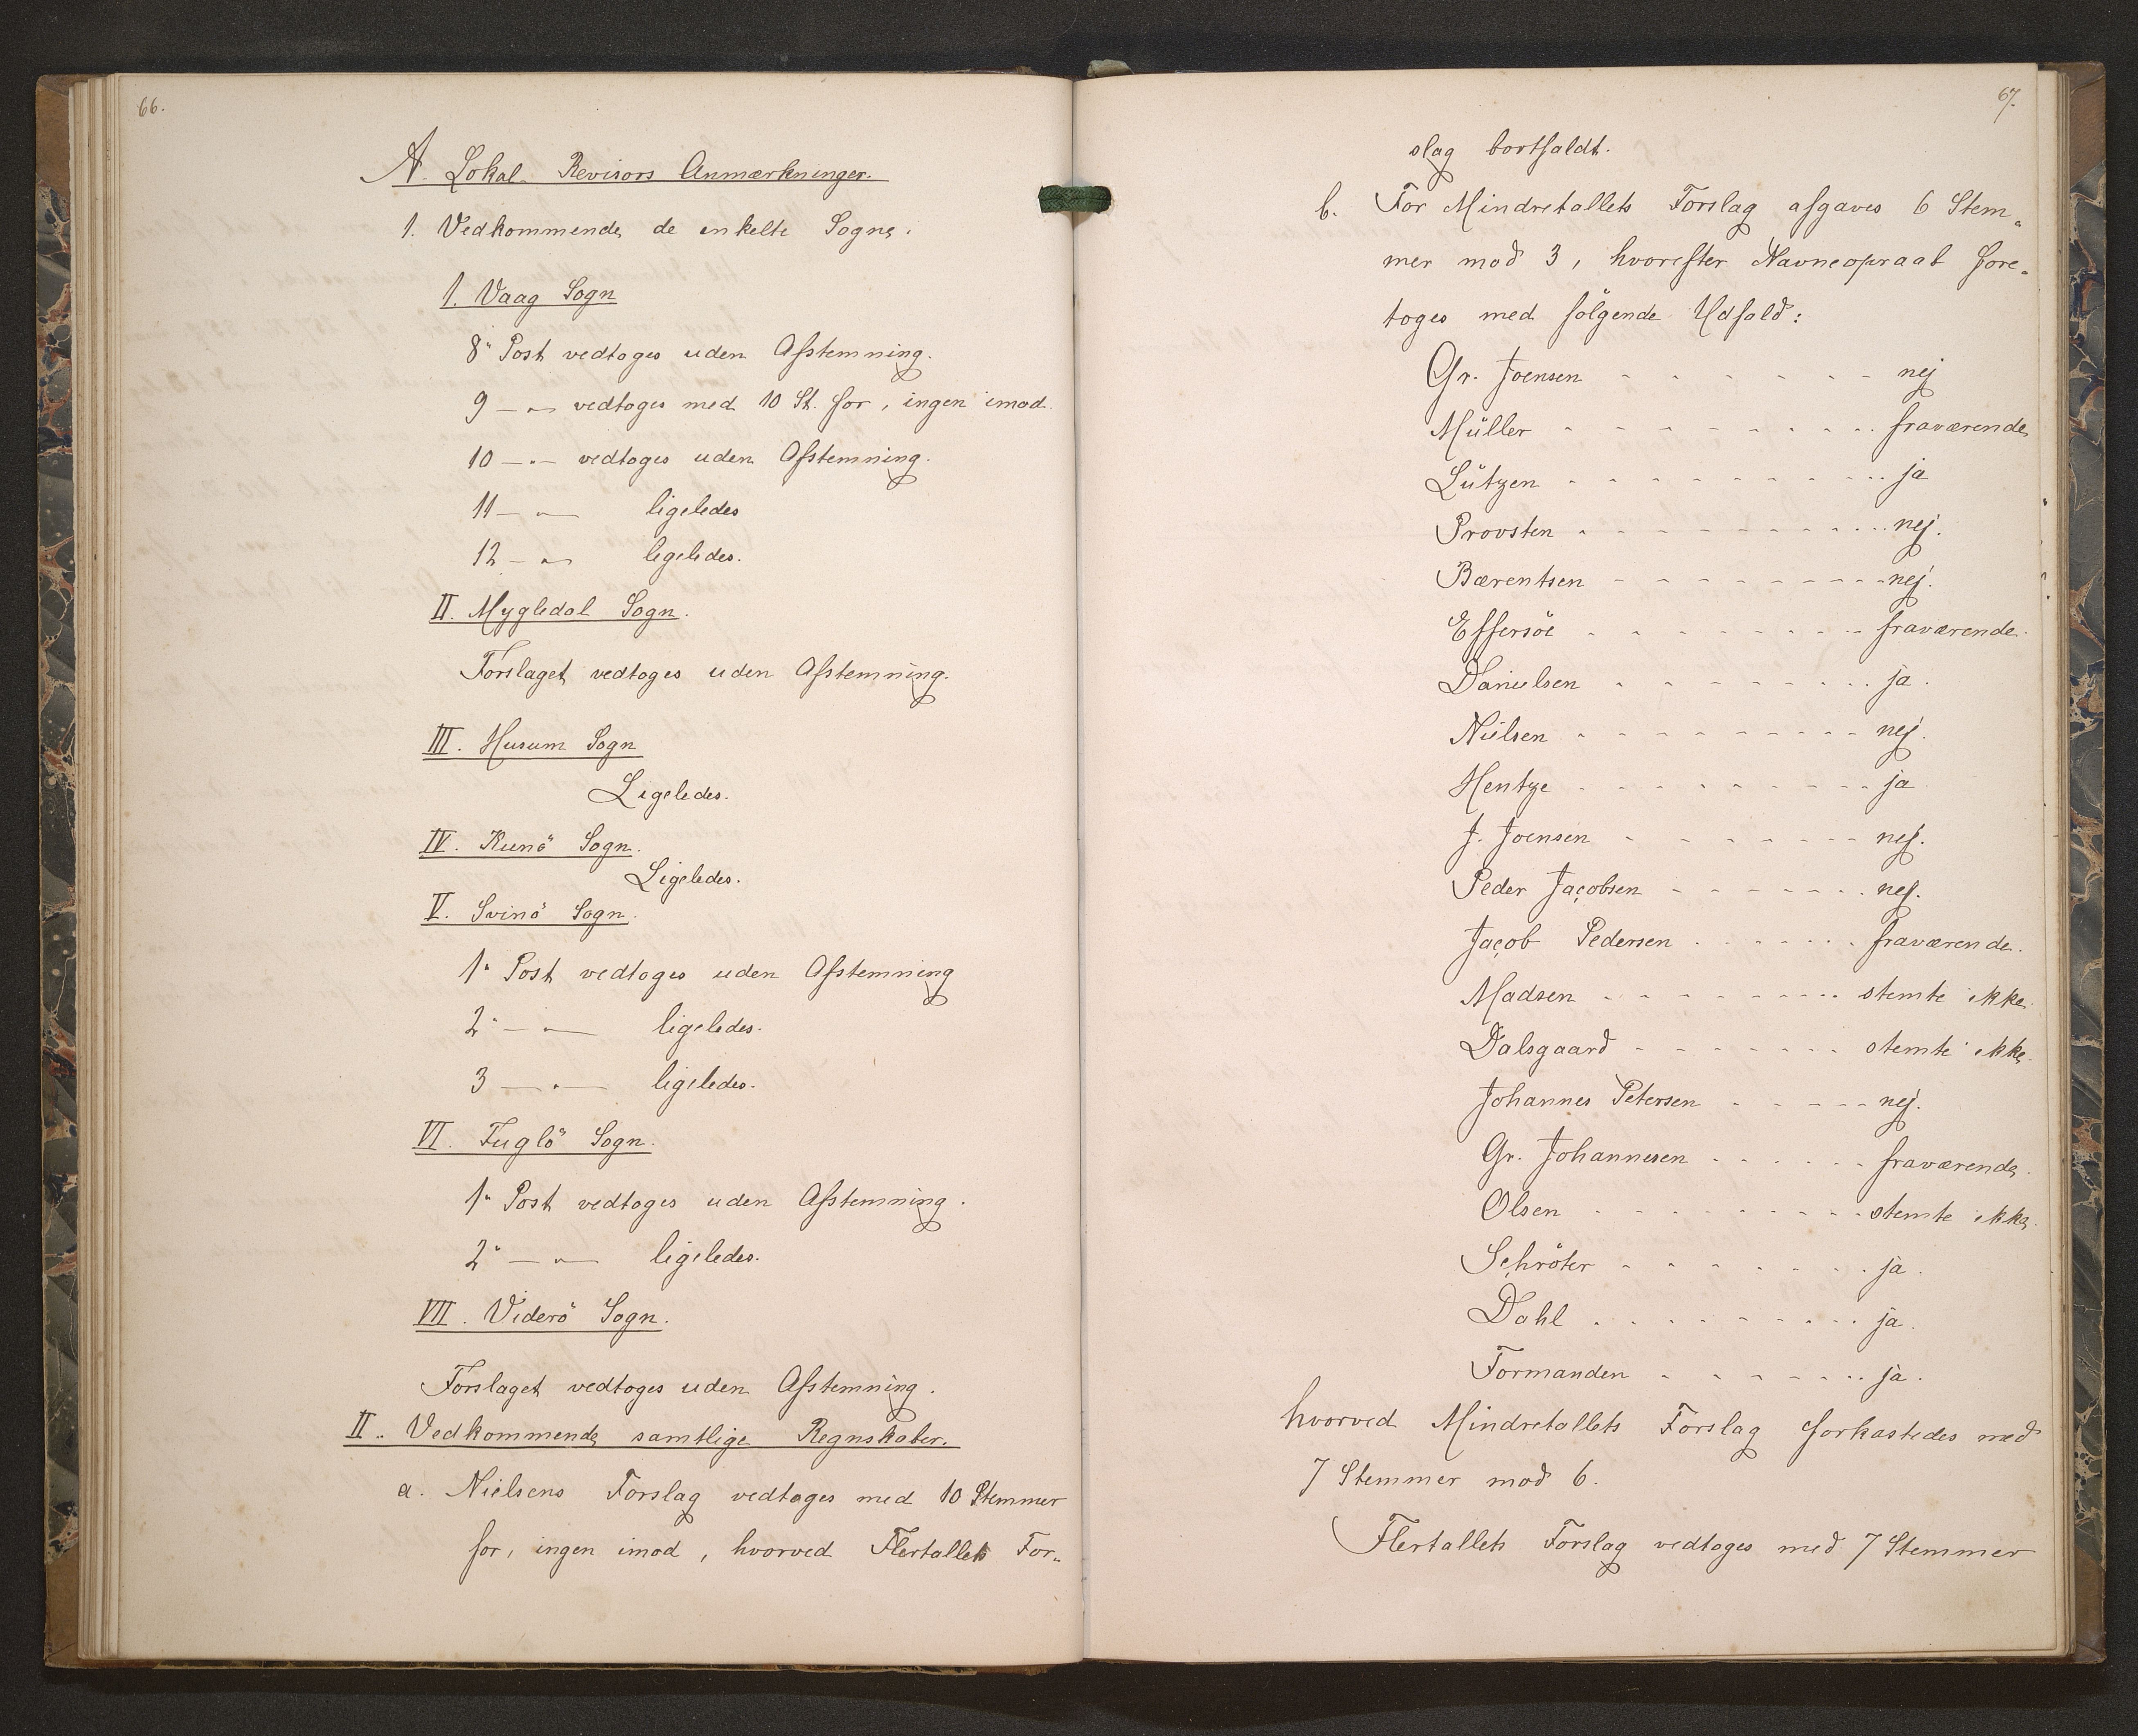 66.
A. Lokal-Revisors Anmærkninger.
1. Vedkommende de enkelte Sogne.
1. Vaag Sogn
8" Post vedtoges uden Afstemning.
9 — " — vedtoges med 10 St. for, ingen imod.
10 — " — vedtoges uden Afstemning.
11 — " — ligeledes
12 — " — ligeledes.
II. Mygledal Sogn.
Forslaget vedtoges uden Afstemning.
III. Husum Sogn
Ligeledes.
IV. Kunö Sogn.
Ligeledes.
V. Svinö Sogn.
1" Post vedtoges uden Afstemning
2" — " — ligeledes.
3 — " — ligeledes.
VI. Fuglö Sogn.
1" Post vedtoges uden Afstemning.
2" — " — ligeledes.
VII. Viderö Sogn.
Forslaget vedtoges uden Afstemning.
II.. Vedkommende samtlige Regnskaber.
a. Nielsens Forslag vedtoges med 10 Stemmer
for, ingen imod, hvorved Flertallets For-
67.
slag bortfaldt.
b. For Mindretallets Forslag afgaves 6 Stem-
mer mod 3, hvorefter Navneopraab fore-
toges med følgende Udfald:
Gr. Joensen - - - - - - - nej
Müller - - - - - - - - fraværende
Lützen - - - - - - - - ja
Provsten - - - - - - - - nej.
Bærentsen - - - - - - - - nej.
Effersöe - - - - - - - fraværende.
Danielsen - - - - - - - ja.
Nielsen - - - - - - - - nej.
Hentze - - - - - - - - ja
J. Joensen - - - - - - - nej.
Peder Jacobsen - - - - - - nej.
Jacob Pedersen - - - - - - fraværende.
Madsen - - - - - - - - stemte ikke.
Dalsgaard - - - - - - - stemte ikke.
Johannes Petersen - - - - - nej.
Gr. Johannesen - - - - - - fraværende.
Olsen - - - - - - - - - stemte ikke.
Schröter - - - - - - - - ja.
Dahl - - - - - - - - - ja.
Formanden - - - - - - - ja.
hvorved Mindretallets Forslag forkastedes med
7 Stemmer mod 6.
Flertallets Forslag vedtoges med 7 Stemmer